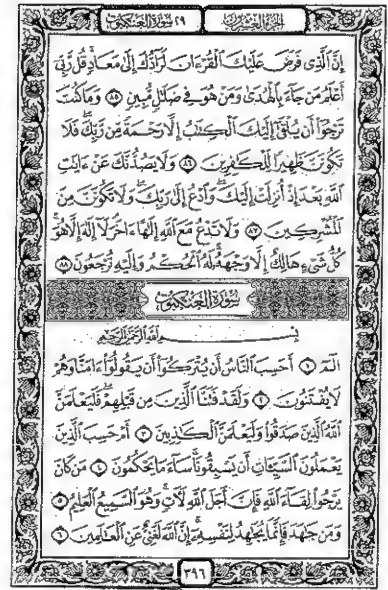 الجزء العشرون
٢٩ سورة العنكبوت
إِنَّ ٱلَّذِى فَرَضَ عَلَيْكَ ٱلْقُرْءَانَ لَرَآدُّكَ إِلَىٰ مَعَادٍ قُل رَّبِّىٓ
أَعْلَمُ مَن جَآءَ بِٱلْهُدَىٰ وَمَنْ هُوَ فِى ضَلَٰلٍ مُّبِينٍ ٨٥ وَمَا كُنتَ
تَرْجُوٓا۟ أَن يُلْقَىٰٓ إِلَيْكَ ٱلْكِتَٰبُ إِلَّا رَحْمَةً مِّن رَّبِّكَ فَلَا
تَكُونَنَّ ظَهِيرًا لِّلْكَٰفِرِينَ ٨٦ وَلَا يَصُدُّنَّكَ عَنْ ءَايَٰتِ
ٱللَّهِ بَعْدَ إِذْ أُنزِلَتْ إِلَيْكَ وَٱدْعُ إِلَىٰ رَبِّكَ وَلَا تَكُونَنَّ مِنَ
ٱلْمُشْرِكِينَ ٨٧ وَلَا تَدْعُ مَعَ ٱللَّهِ إِلَٰهًا ءَاخَرَ لَآ إِلَٰهَ إِلَّا هُوَ
كُلُّ شَىْءٍ هَالِكٌ إِلَّا وَجْهَهُۥ لَهُ ٱلْحُكْمُ وَإِلَيْهِ تُرْجَعُونَ ٨٨
سورة العنكبوت
بِسْمِ ٱللَّهِ ٱلرَّحْمَٰنِ ٱلرَّحِيمِ
الٓمٓ ١ أَحَسِبَ ٱلنَّاسُ أَن يُتْرَكُوٓا۟ أَن يَقُولُوٓا۟ ءَامَنَّا وَهُمْ
لَا يُفْتَنُونَ ٢ وَلَقَدْ فَتَنَّا ٱلَّذِينَ مِن قَبْلِهِمْ فَلَيَعْلَمَنَّ
ٱللَّهُ ٱلَّذِينَ صَدَقُوا۟ وَلَيَعْلَمَنَّ ٱلْكَٰذِبِينَ ٣ أَمْ حَسِبَ ٱلَّذِينَ
يَعْمَلُونَ ٱلسَّيِّـَٔاتِ أَن يَسْبِقُونَا سَآءَ مَا يَحْكُمُونَ ٤ مَن كَانَ
يَرْجُوا۟ لِقَآءَ ٱللَّهِ فَإِنَّ أَجَلَ ٱللَّهِ لَـَٔاتٍ وَهُوَ ٱلسَّمِيعُ ٱلْعَلِيمُ ٥
وَمَن جَٰهَدَ فَإِنَّمَا يُجَٰهِدُ لِنَفْسِهِۦٓ إِنَّ ٱللَّهَ لَغَنِىٌّ عَنِ ٱلْعَٰلَمِينَ ٦
٣٩٦